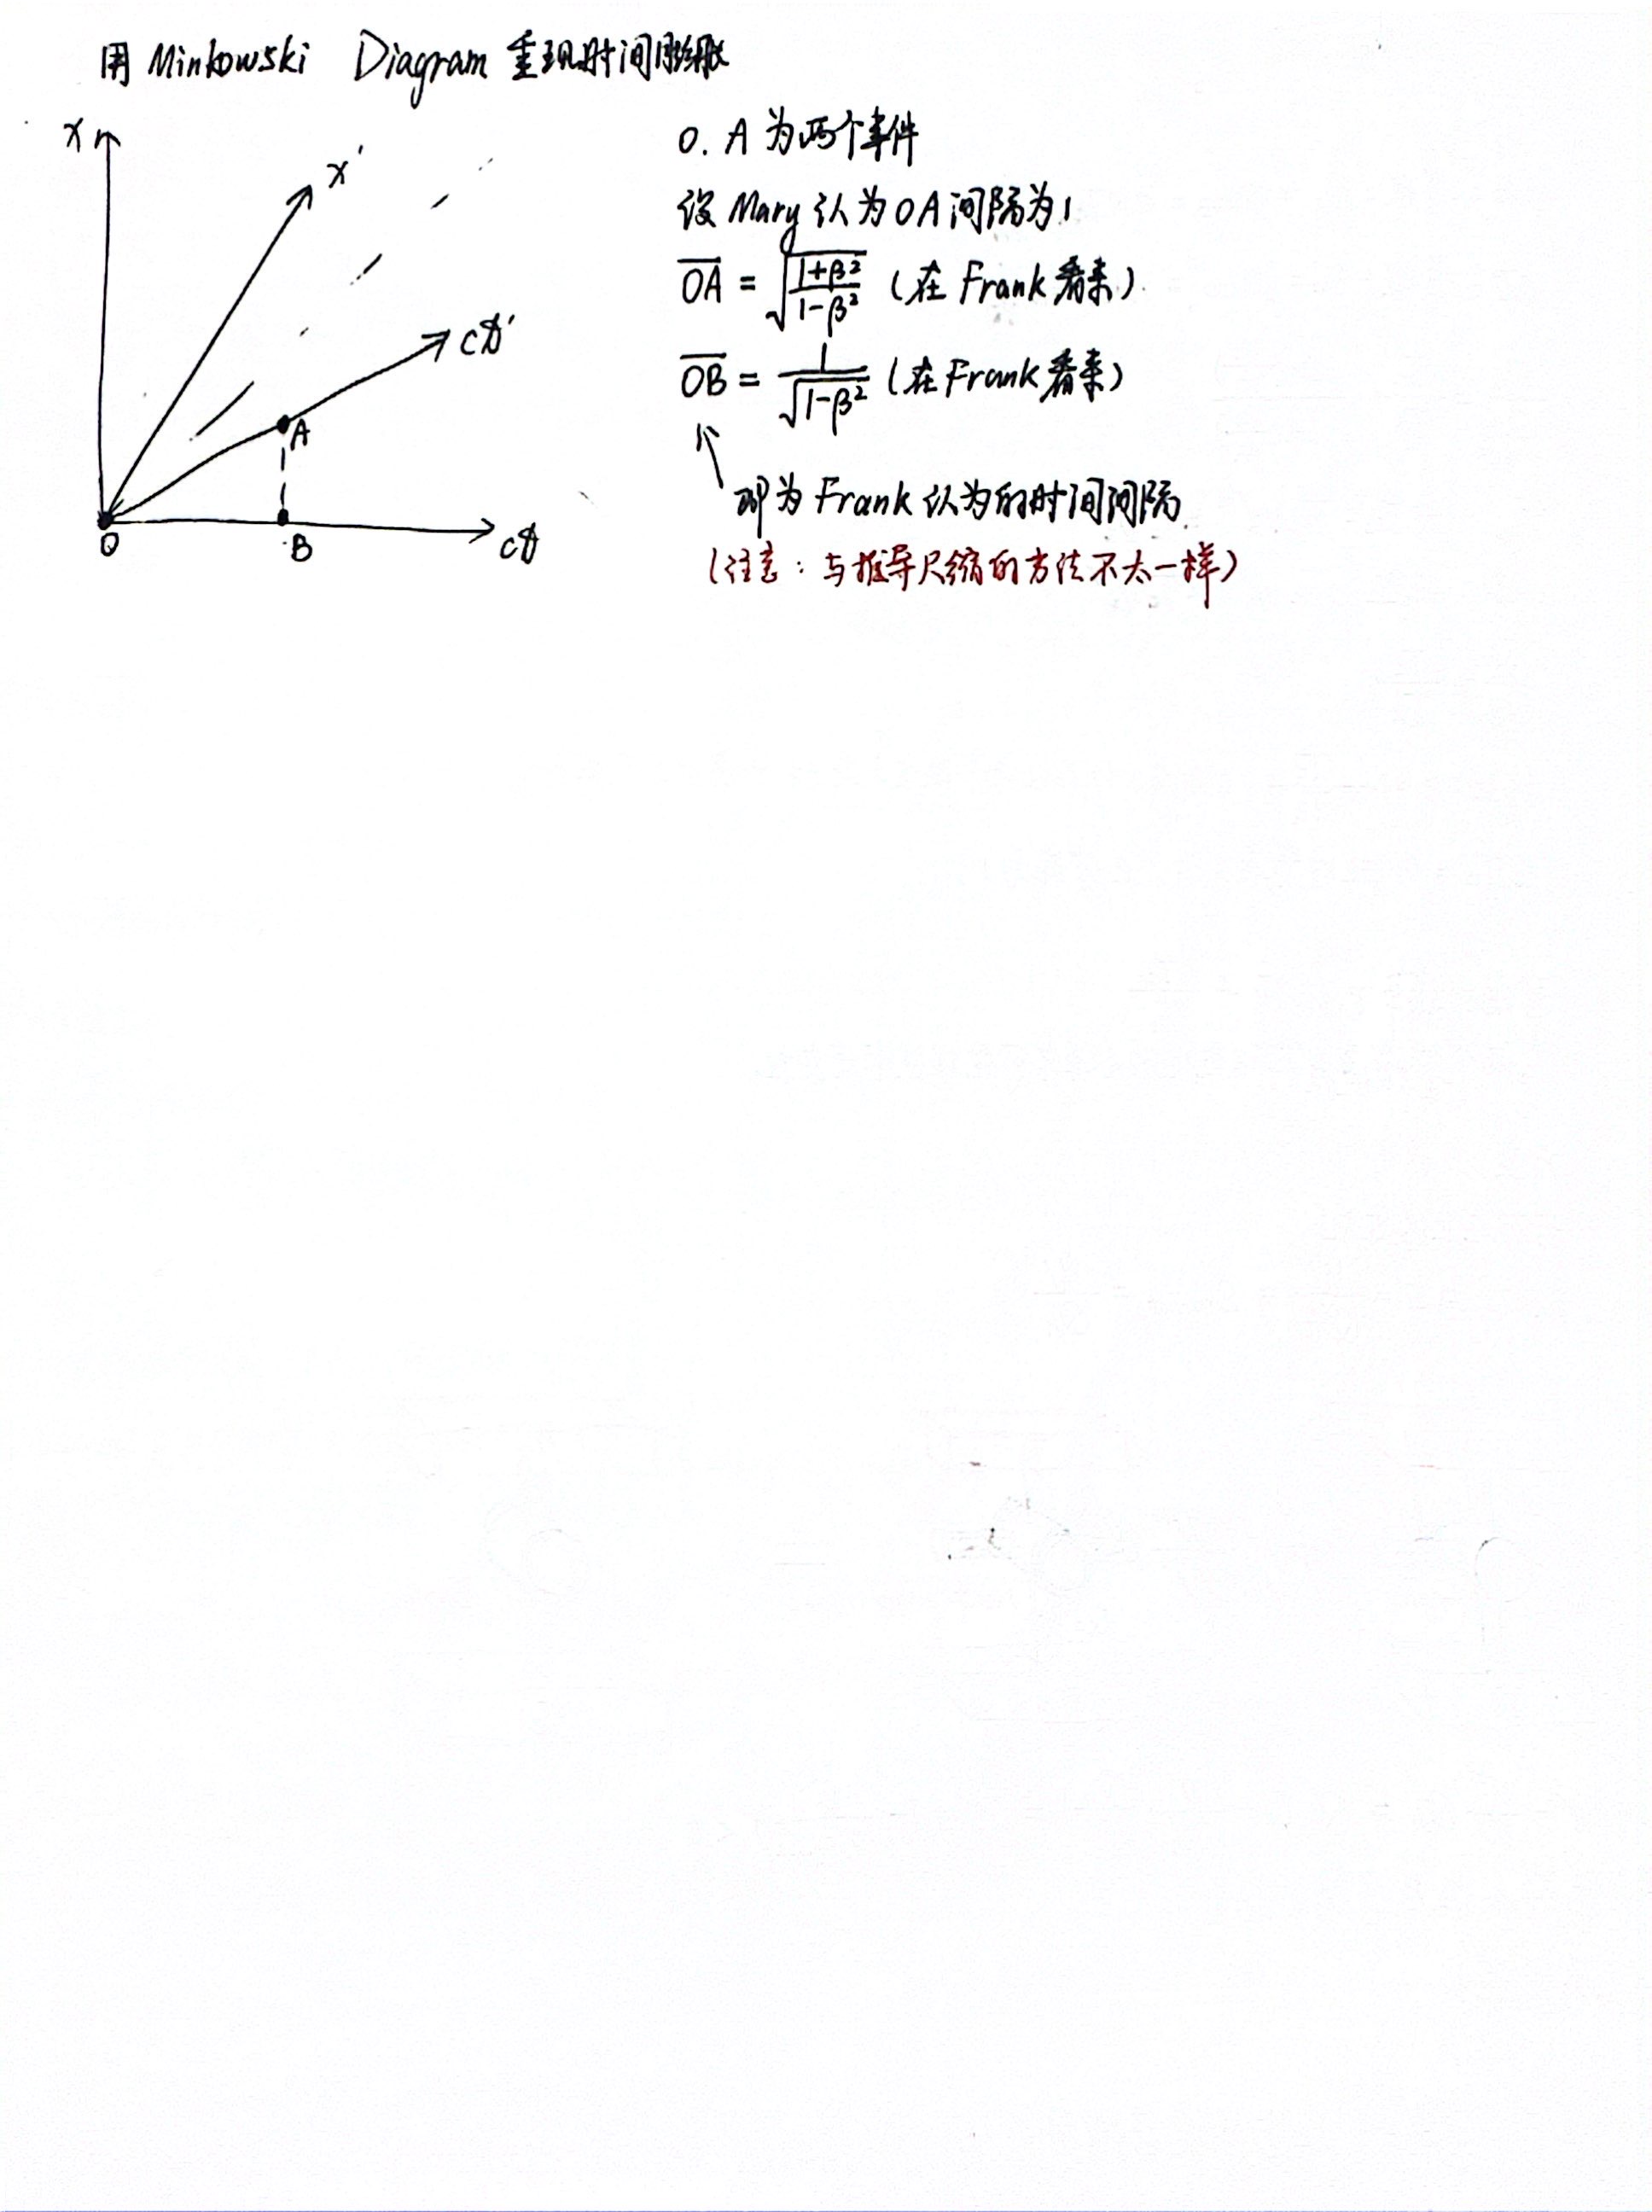 用 Minkowski Diagram 重现时间膨胀
x
x'
ct'
A
O
B
ct
O. A 为两个事件
设 Mary 认为 OA 间隔为 1
\overline{OA} = \sqrt{\frac{1+β²}{1-β²}} (在 Frank 看来)
\overline{OB} = \frac{1}{\sqrt{1-β²}} (在 Frank 看来)
即为 Frank 认为的时间间隔
(注意：与推导尺缩的方法不太一样)